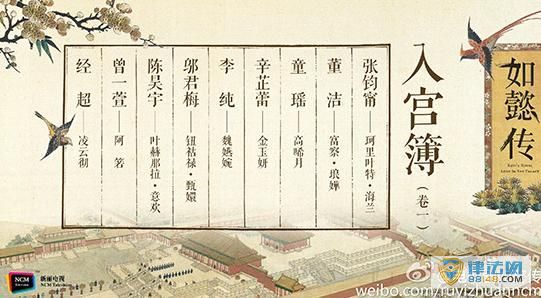 如懿传
Ruyi's Royal
Love in the Palace
入宫簿（卷一）
张钧甯——珂里叶特·海兰
董洁——富察·琅嬅
童瑶——高晞月
辛芷蕾——金玉妍
李纯——魏嬿婉
邬君梅——钮祜禄·甄嬛
陈昊宇——叶赫那拉·意欢
曾一萱——阿箬
经超——凌云彻
NCM
新丽电视
NCM Television
律法网
88148.com
weibo.com/ruyizhuanncm